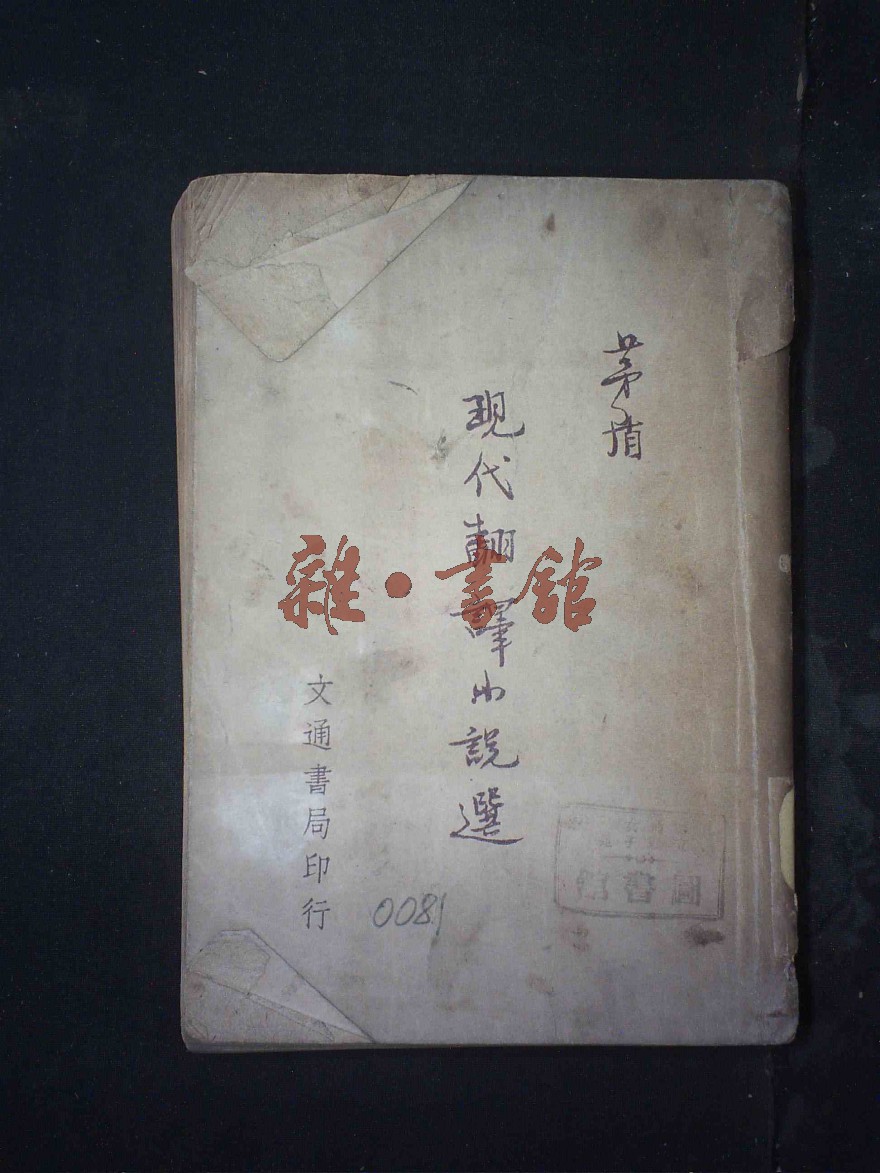 茅盾
現代翻譯小説選
文通書局印行
0081
雜·書舘
圖書館